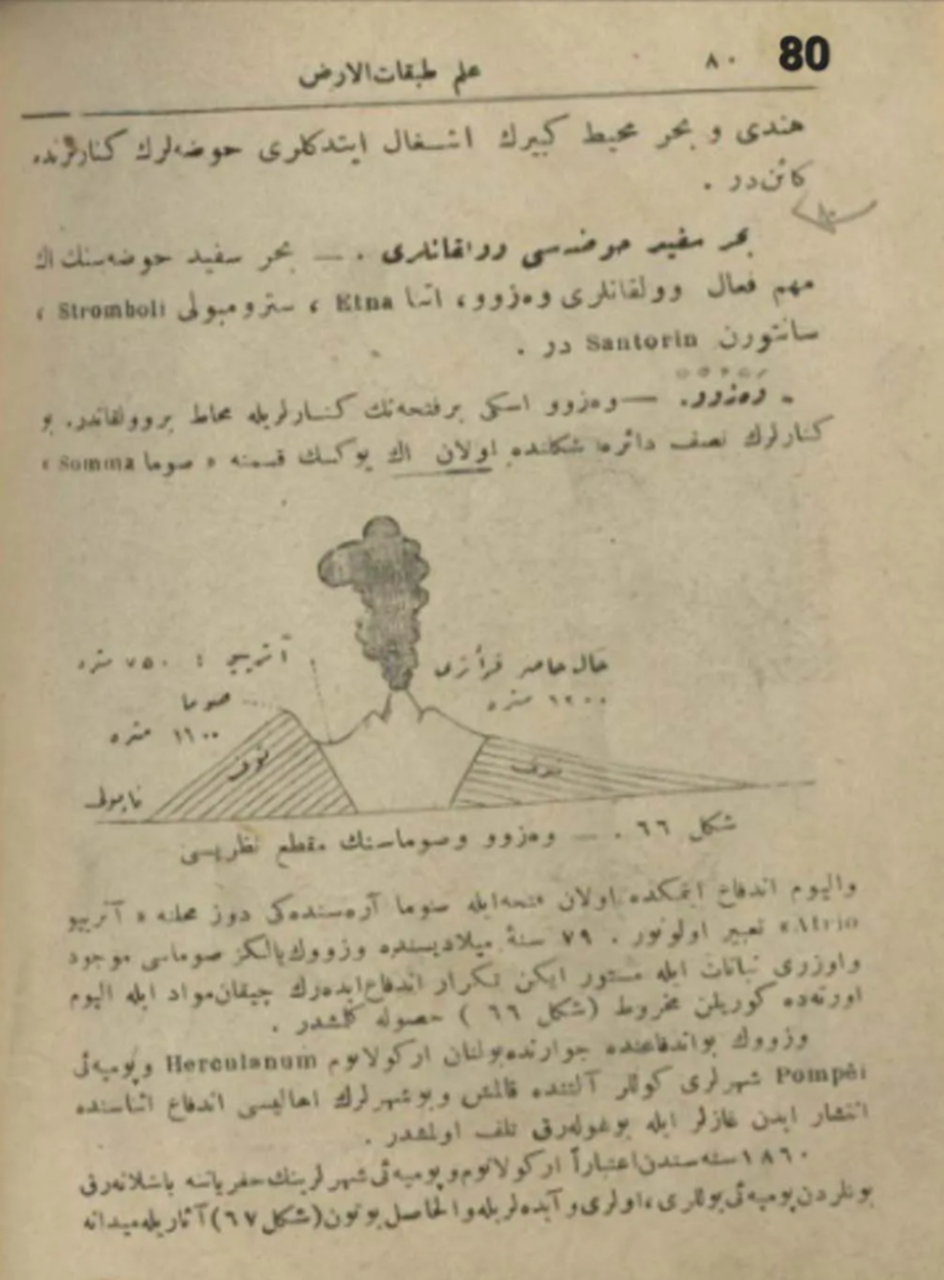 80
علم طبقات‌الارض ٨٠
هندی و بحر محیط کبیرك اشــغال ایتدکلری حوضه‌لرك کنارلرنده
کائن‌در .
بحر سفید حوضه‌سی وولقانلری . — بحر سفید حوضه‌سنك اڭ
مهم فعال وولقانلری وه‌زوو، اتنا Etna ، سترومبولی Stromboli ،
سانتورن Santorin در .
وه‌زوو. — وه‌زوو اسکی برفتحه‌نك کنــارلریله محاط بروولقاندر. بو
کنارلرك نصف دائره شکلنده اولان اڭ یوکسك قسمنه « صوما Somma »
حال حاضر قرأتری
١٢٠٠ متره
آتریو : ٧٥٠ متره
صوما
١١٠٠ متره
توف
توف
ناپولی
شکل ٦٦ . — وه‌زوو وصوماسنك مقطع نظریسی
والیوم اندفاع ایتمکده اولان فتحه‌ایله صوما آره‌سنده‌کی دوز محلنه « آتریو
Atrio» تعبیر اولونور . ٧٩ سنۀ میلادیسنده وزووك یالکز صوماسی موجود
واوزری نباتات ایله مستور ایکن تکرار اندفاع‌ایده‌رك چیقان‌مواد ایله الیوم
اورته‌ده کوریلن مخروط (شکل ٦٦ ) حصوله کلمشدر .
وزووك بواندفاعنده جوارنده‌بولنان ارکولانوم Herculanum وپومپه‌ئی
Pompéi شهرلری کوللر آلتنده قالمش وبوشهرلرك اهالیسی اندفاع اثناسنده
انتشار ایدن غازلر ایله بوغوله‌رق تلف اولمشدر .
١٨٦٠ سنه‌سندن‌اعتباراً ارکولانوم‌وپومپه‌ئی شهرلرینك‌حفریاتنه باشلانه‌رق
بونلردن‌پومپه‌ئی یوللری،اولری وآبده‌لریله‌والحاصل بوتون(شکل٦٧)آثاریله‌میدانه